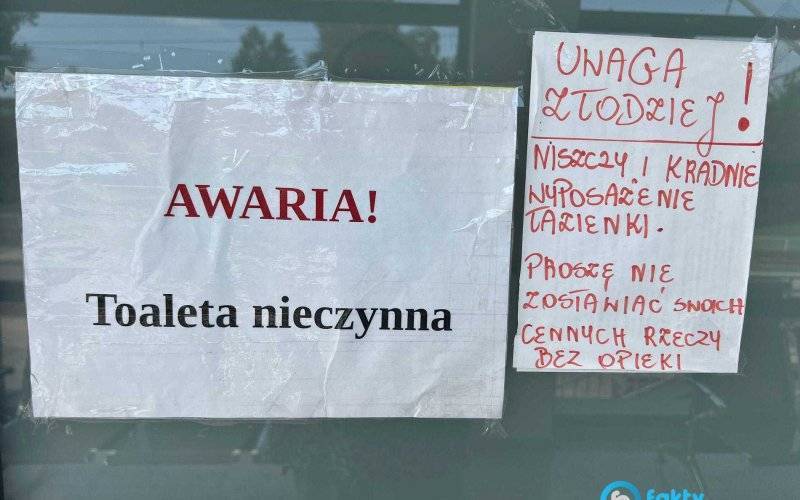 AWARIA!
Toaleta nieczynna
UWAGA
ZŁODZIEJ!
NISZCZY I KRADNIE
WYPOSAŻENIE
ŁAZIENKI.
PROSZĘ NIE
ZOSTAWIAĆ SWOICH
CENNYCH RZECZY
BEZ OPIEKI
fakty